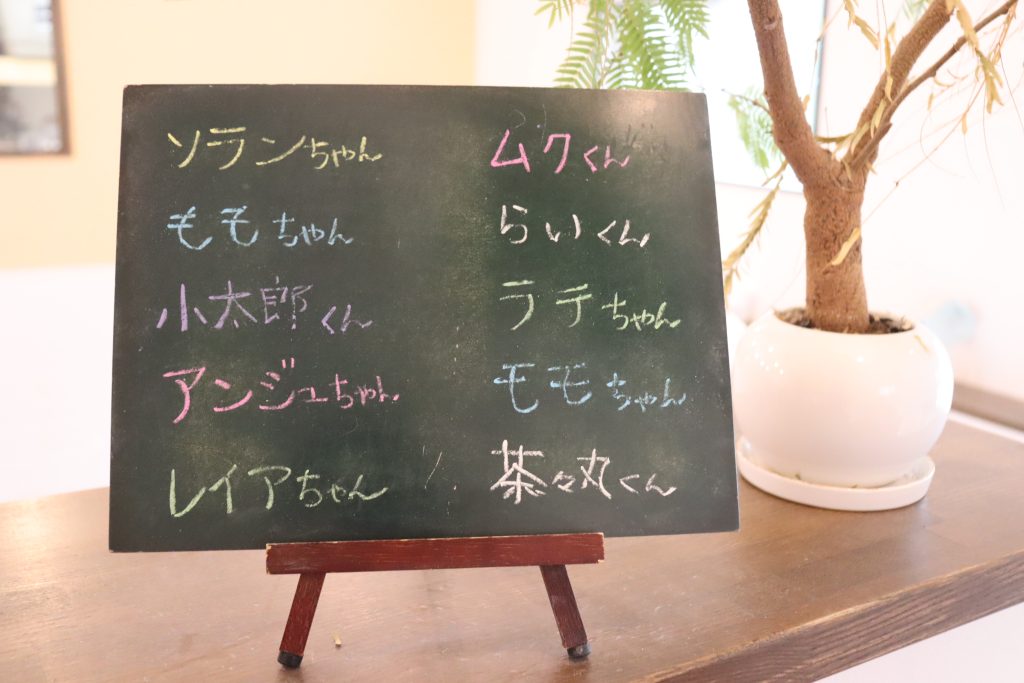 ソランちゃん
ももちゃん
小太郎くん
アンジュちゃん
レイアちゃん
ムクくん
らいくん
ラテちゃん
モモちゃん
茶々丸くん